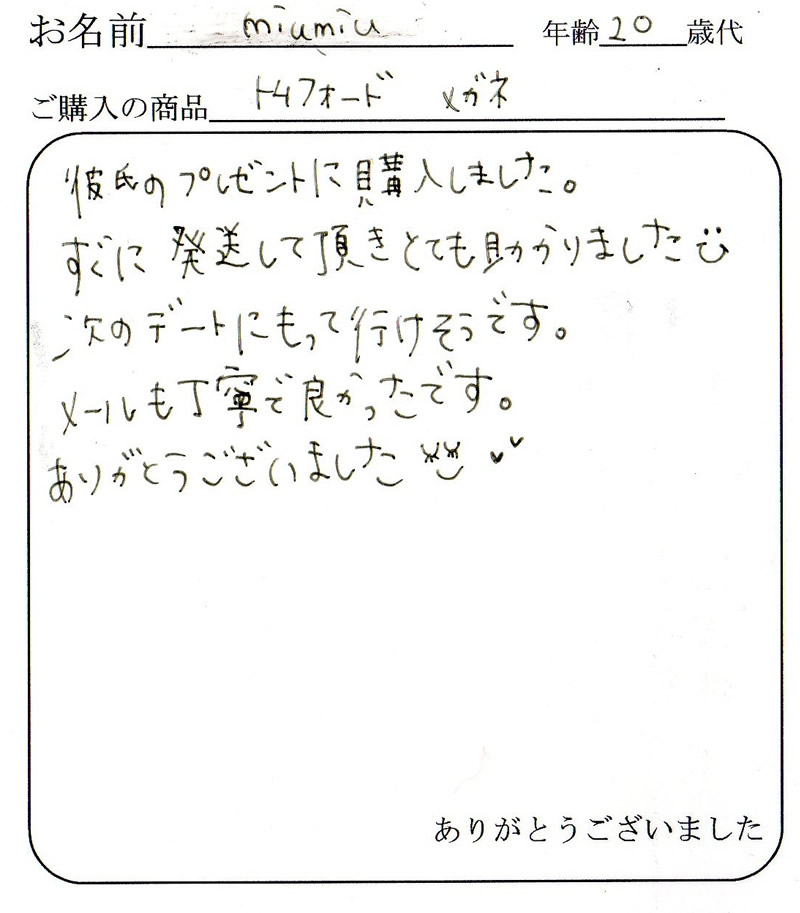 お名前 miumiu 年齢 20 歳代
ご購入の商品 トムフォード メガネ
彼氏のプレゼントに購入しました。
すぐに発送して頂きとても助かりました
次のデートにもって行けそうです。
メールも丁寧で良かったです。
ありがとうございました
ありがとうございました